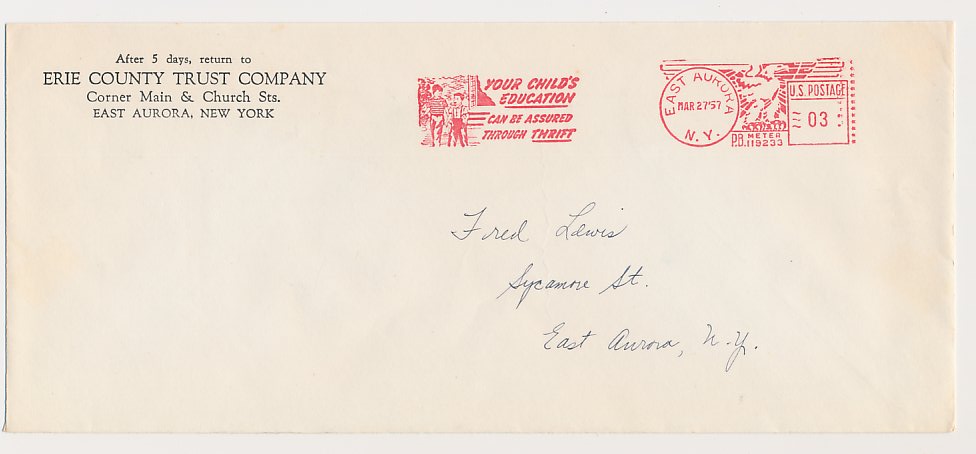 After 5 days, return to
ERIE COUNTY TRUST COMPANY
Corner Main & Church Sts.
EAST AURORA, NEW YORK
YOUR CHILD'S
EDUCATION
CAN BE ASSURED
THROUGH THRIFT
EAST AURORA
MAR 27 '57
N.Y.
U.S. POSTAGE
03
P.B. METER
119233
Fred Lewis
Sycamore St.
East Aurora, N.Y.